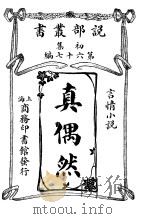 說部叢書
初集
第六十七編
言情小說
真偶然
上海商務印書館發行
www.mtcbook.com